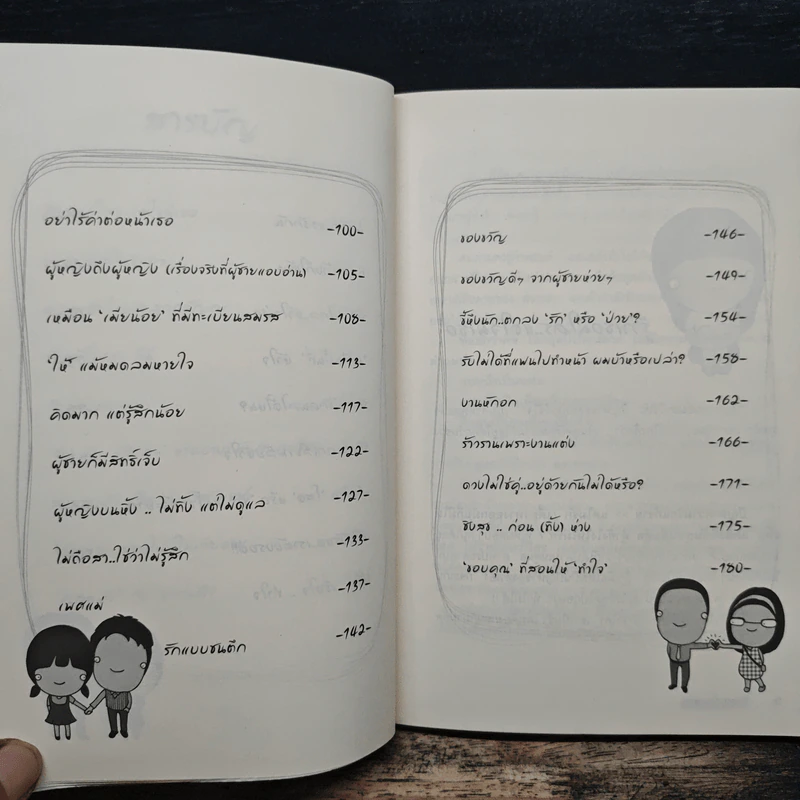 อย่าไร้ค่าต่อหน้าเธอ -100-
ผู้หญิงถึงผู้หญิง (เรื่องจริงที่ผู้ชายแอบอ่าน) -105-
เหมือน 'เมียน้อย' ที่มีทะเบียนสมรส -108-
'ให้' แม้หมดลมหายใจ -113-
คิดมาก แต่รู้สึกน้อย -117-
ผู้ชายก็มีสิทธิ์เจ็บ -122-
ผู้หญิงบนหิ้ง .. ไม่ทิ้ง แต่ไม่ดูแล -127-
ไม่ถือสา..ใช่ว่าไม่รู้สึก -133-
เพศแม่ -137-
รักแบบชนตึก -142-
ของขวัญ -146-
ของขวัญดีๆ จากผู้ชายห่วยๆ -149-
ขี้หึงนัก..ตกลง 'รัก' หรือ 'ป่วย'? -154-
รับไม่ได้ที่แฟนไปทำหน้า ผมบ้าหรือเปล่า? -158-
งานหักอก -162-
ร้าวรานเพราะงานแต่ง -166-
ดวงไม่ใช่คู่..อยู่ด้วยกันไม่ได้หรือ? -171-
ชิงสุข .. ก่อน (ทิ้ง) ห่าง -175-
'ขอบคุณ' ที่สอนให้ 'ทำใจ' -180-